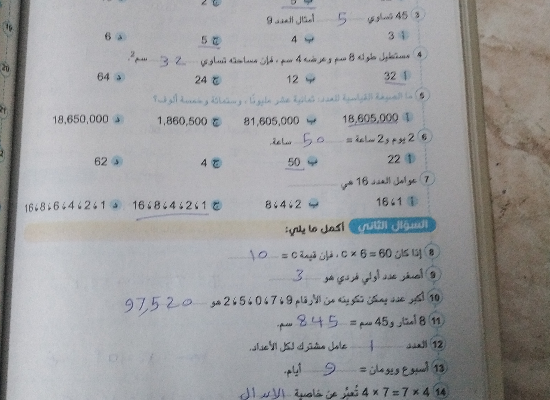 3 45 تساوي 5 أمثال العدد 9
أ 3 ب 4 ج 5 د 6
4 مستطيل طوله 8 سم وعرضه 4 سم ، فإن مساحته تساوي 32 سم².
أ 32 ب 12 ج 24 د 64
5 ما الصيغة القياسية للعدد: ثمانية عشر مليونًا ، وستمائة وخمسة ألوف؟
أ 18,605,000 ب 81,605,000 ج 1,860,500 د 18,650,000
6 2 يوم و2 ساعة = 50 ساعة.
أ 22 ب 50 ج 4 د 62
7 عوامل العدد 16 هي
أ 1، 16 ب 2، 4، 8 ج 1، 2، 4، 8، 16 د 1، 2، 4، 6، 8، 16
السؤال الثاني أكمل ما يلي:
8 إذا كان 60 = 6 × c ، فإن قيمة c = 10
9 أصغر عدد أولي فردي هو 3
10 أكبر عدد يمكن تكوينه من الأرقام 9، 7، 0، 5، 2 هو 97,520
11 8 أمتار و45 سم = 845 سم.
12 العدد 1 عامل مشترك لكل الأعداد.
13 أسبوع ويومان = 9 أيام.
14 4 × 7 = 7 × 4 تُعبِّر عن خاصية